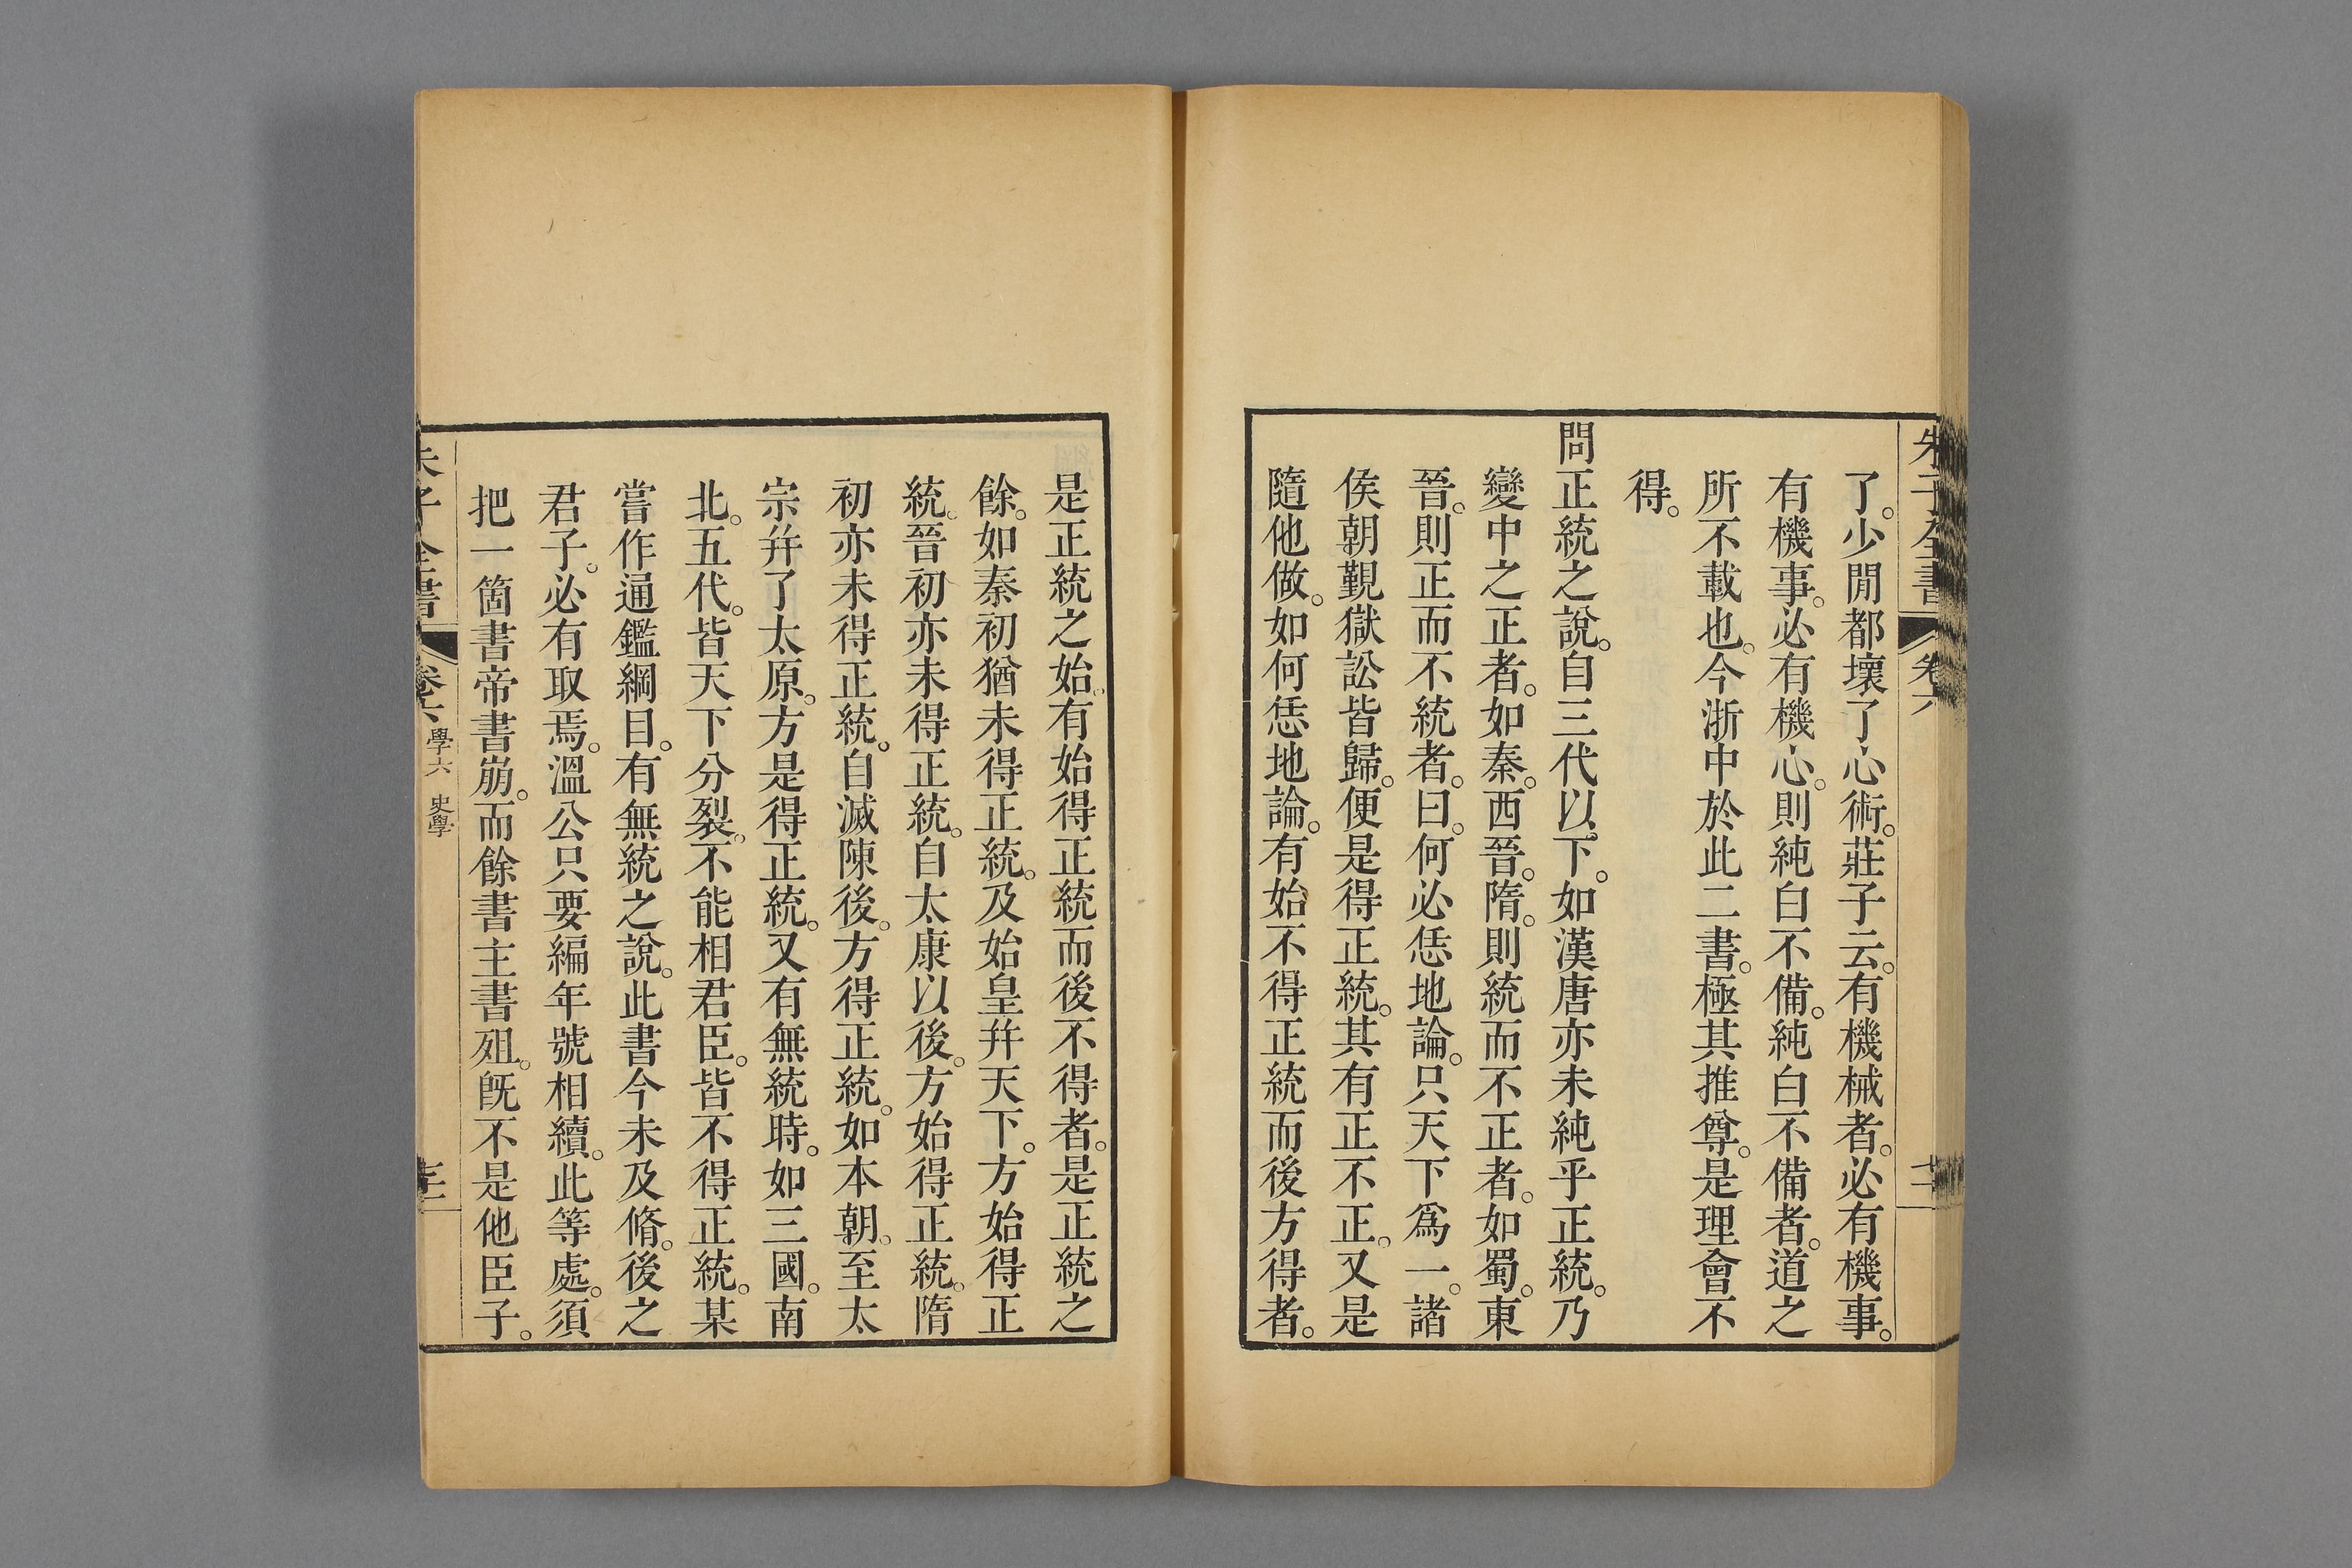 朱子全書 卷六
了。少閒都壞了心術。莊子云。有機械者。必有機事。
有機事。必有機心。則純白不備。純白不備者。道之
所不載也。今浙中於此二書。極其推尊。是理會不
得。
問正統之說。自三代以下。如漢唐亦未純乎正統。乃
變中之正者。如秦。西晉。隋。則統而不正者。如蜀。東
晉。則正而不統者。曰。何必恁地論。只天下爲一。諸
侯朝覲獄訟皆歸。便是得正統。其有正不正。又是
隨他做。如何恁地論。有始不得正統而後方得者。
是正統之始。有始得正統而後不得者。是正統之
餘。如秦初猶未得正統。及始皇幷天下。方始得正
統。晉初亦未得正統。自太康以後。方始得正統。隋
初亦未得正統。自滅陳後。方得正統。如本朝。至太
宗幷了太原。方是得正統。又有無統時。如三國。南
北。五代。皆天下分裂。不能相君臣。皆不得正統。某
嘗作通鑑綱目。有無統之說。此書今未及脩。後之
君子。必有取焉。溫公只要編年號相續。此等處。須
把一箇書帝書崩。而餘書主書殂。旣不是他臣子。
朱子全書 卷六 學六 史學